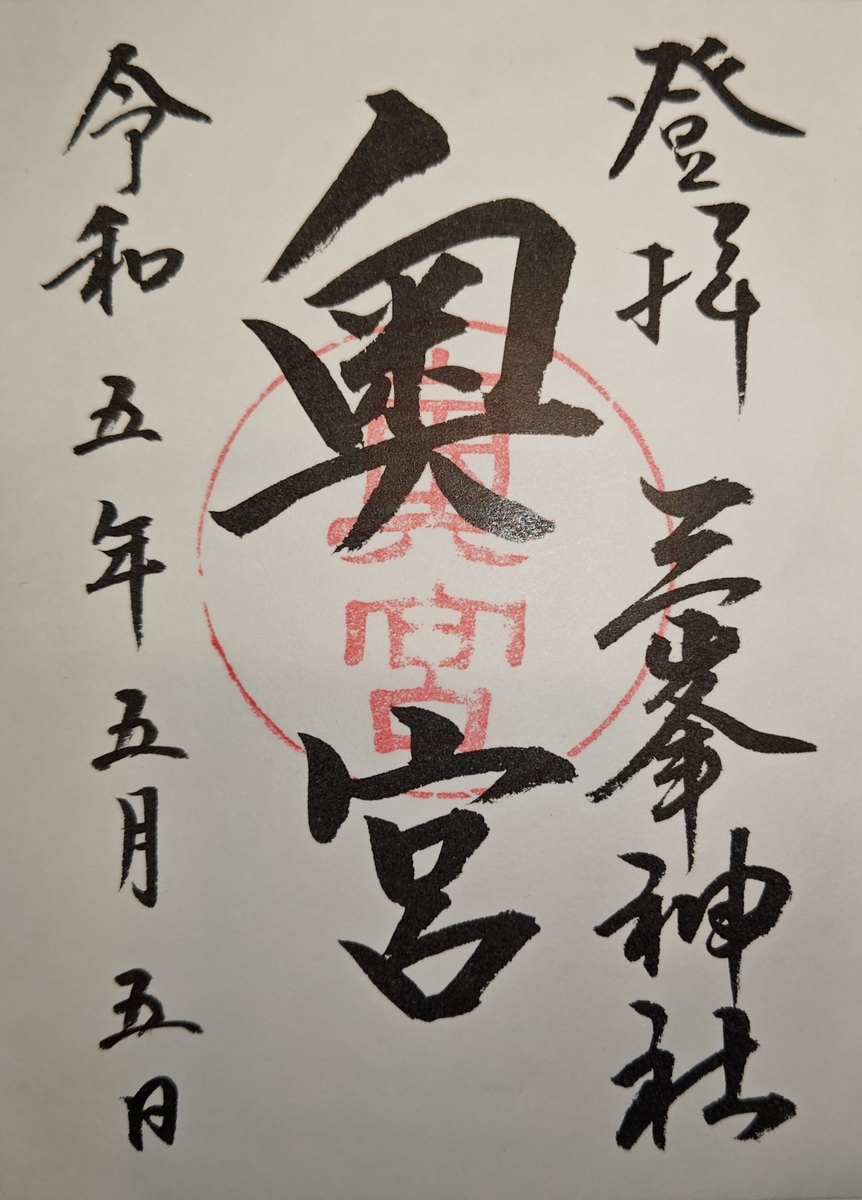 登拝 三峯神社
奥宮
奥宮
令和五年五月五日